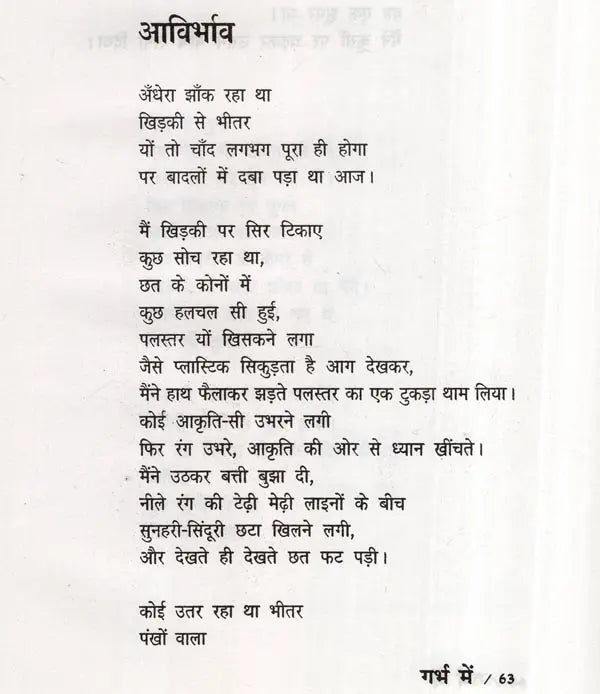 आविर्भाव
अँधेरा झाँक रहा था
खिड़की से भीतर
यों तो चाँद लगभग पूरा ही होगा
पर बादलों में दबा पड़ा था आज।
मैं खिड़की पर सिर टिकाए
कुछ सोच रहा था,
छत के कोनों में
कुछ हलचल सी हुई,
पलस्तर यों खिसकने लगा
जैसे प्लास्टिक सिकुड़ता है आग देखकर,
मैंने हाथ फैलाकर झड़ते पलस्तर का एक टुकड़ा थाम लिया।
कोई आकृति-सी उभरने लगी
फिर रंग उभरे, आकृति की ओर से ध्यान खींचते।
मैंने उठकर बत्ती बुझा दी,
नीले रंग की टेढ़ी मेढ़ी लाइनों के बीच
सुनहरी-सिंदूरी छटा खिलने लगी,
और देखते ही देखते छत फट पड़ी।
कोई उतर रहा था भीतर
पंखों वाला
गर्भ में / 63